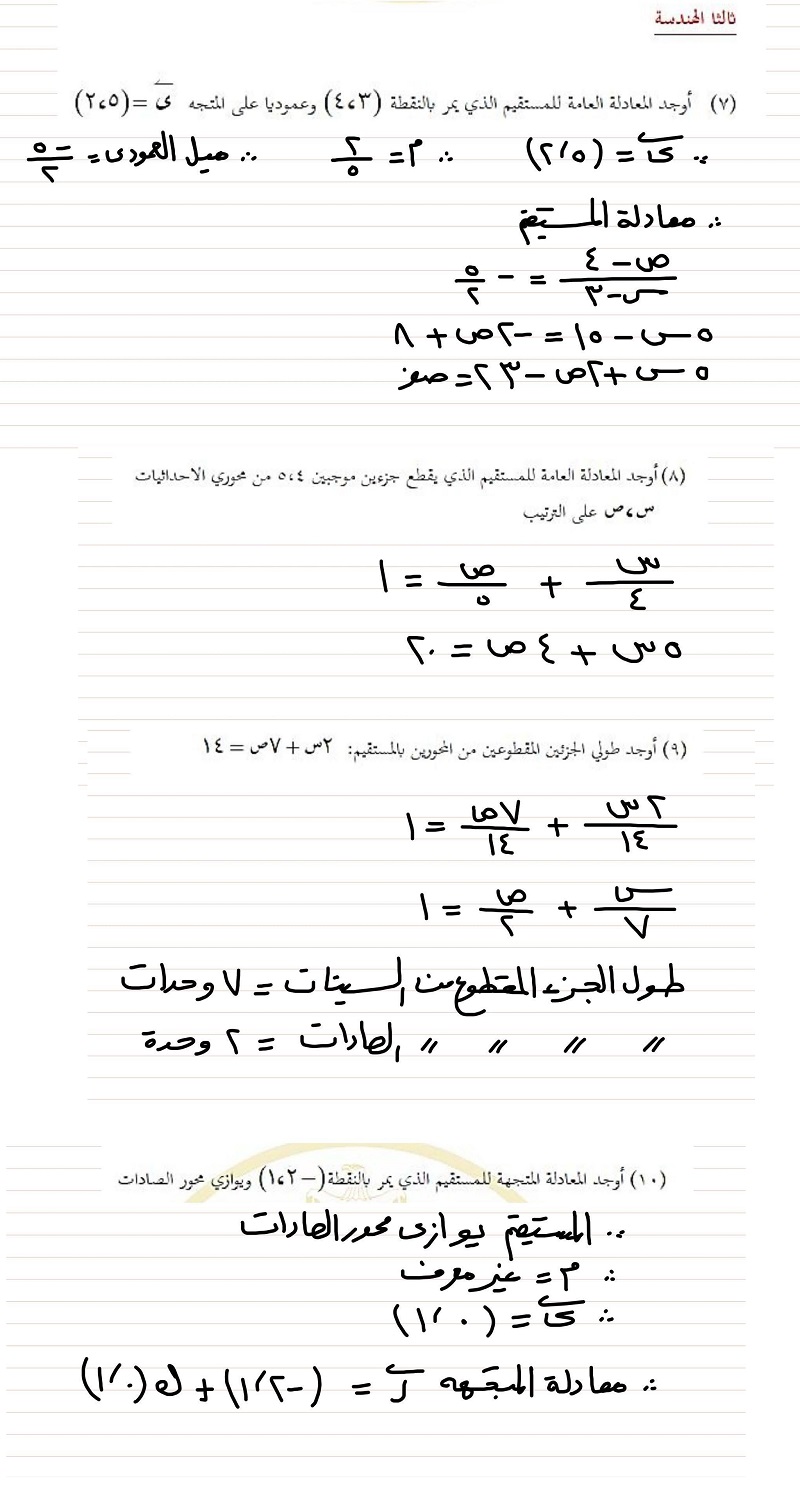 ثالثا الهندسة
(٧) أوجد المعادلة العامة للمستقيم الذي يمر بالنقطة (٣،٤) وعموديا على المتجه ى = (٥،٢)
∵ ى = (٥،٢) ∴ م = ٢/٥ ∴ ميل العمودى = -٥/٢
∴ معادلة المستقيم
ص - ٤ / س - ٣ = - ٥/٢
٥س - ١٥ = -٢ص + ٨
٥س + ٢ص - ٢٣ = صفر
(٨) أوجد المعادلة العامة للمستقيم الذي يقطع جزءين موجبين ٥،٤ من محوري الاحداثيات
س،ص على الترتيب
س/٤ + ص/٥ = ١
٥س + ٤ص = ٢٠
(٩) أوجد طولي الجزئين المقطوعين من المحورين بالمستقيم: ٢س + ٧ص = ١٤
٢س/١٤ + ٧ص/١٤ = ١
س/٧ + ص/٢ = ١
طول الجزء المقطوع من السينات = ٧ وحدات
〃 〃 〃 〃 الصادات = ٢ وحدة
(١٠) أوجد المعادلة المتجهة للمستقيم الذي يمر بالنقطة (-١،٢) ويوازي محور الصادات
∵ المستقيم يوازى محور الصادات
∴ م = غير معرف
∴ ى = (٠،١)
∴ معادلة المتجهه ر = (-١،٢) + ك(٠،١)